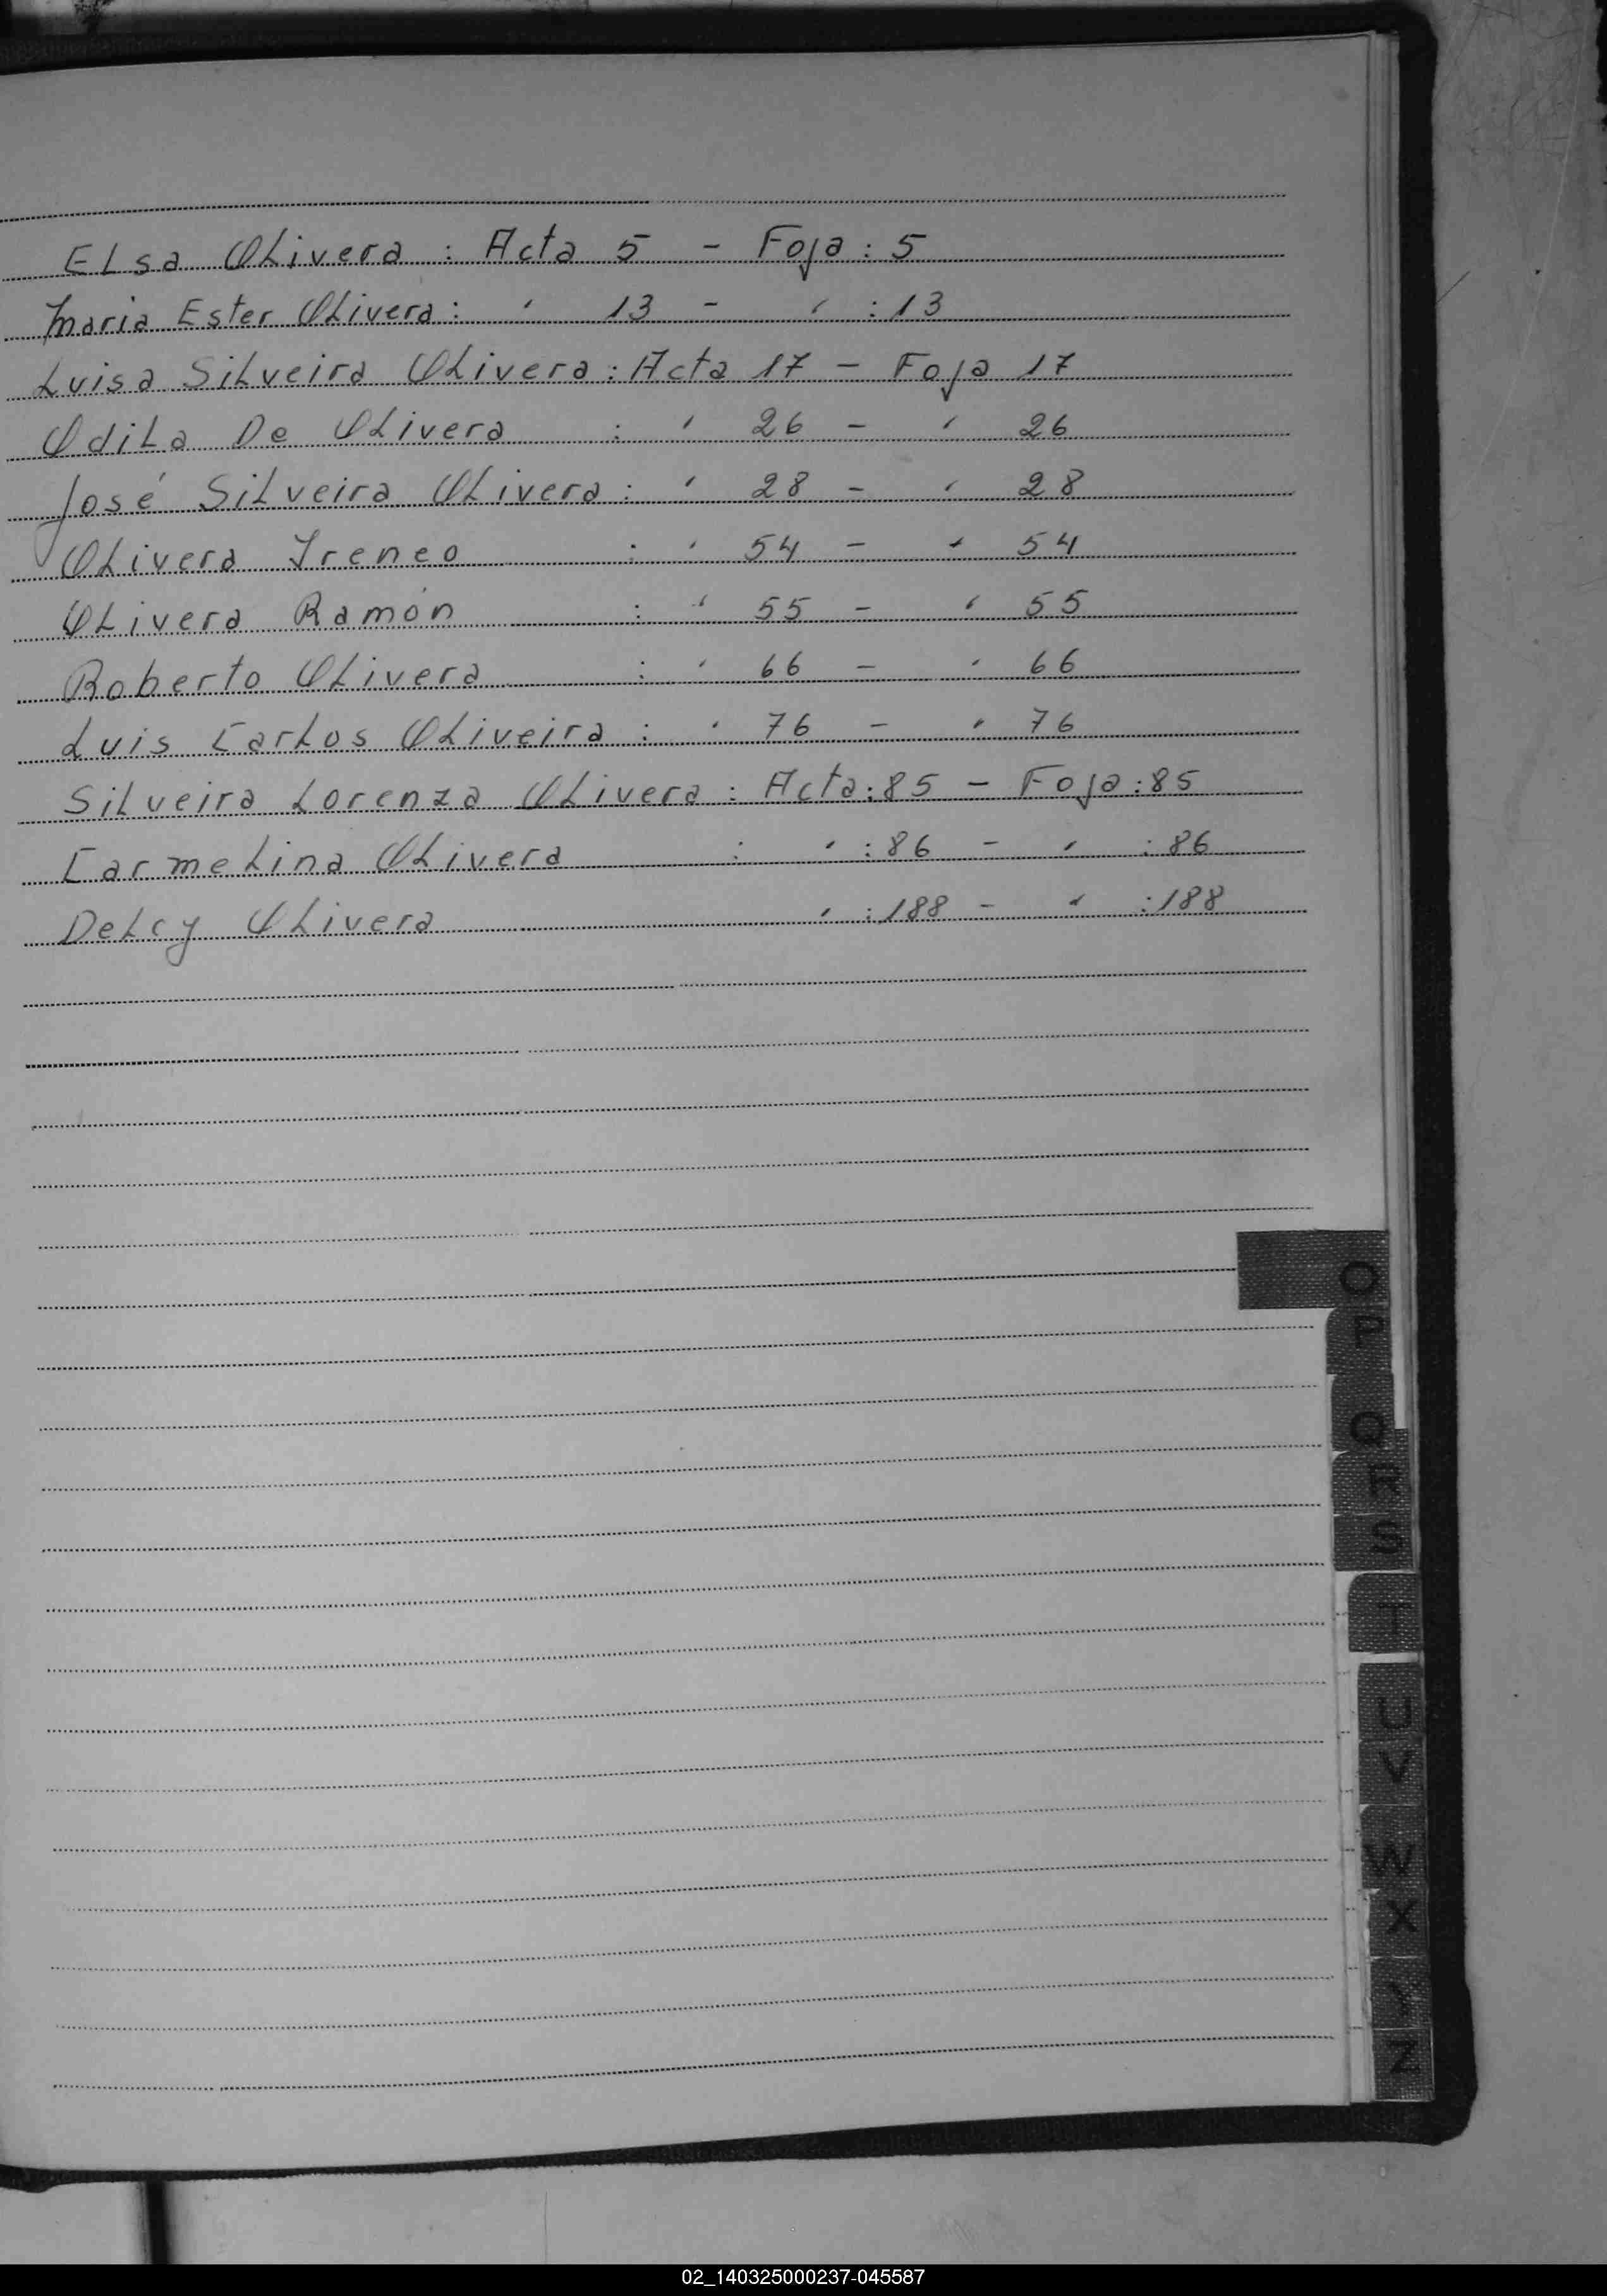 Elsa Olivera : Acta 5 - Foja : 5
Maria Ester Olivera : " 13 - " : 13
Luisa Silveira Olivera : Acta 17 - Foja 17
Odila De Olivera : " 26 - " 26
José Silveira Olivera : " 28 - " 28
Olivera Ireneo : " 54 - " 54
Olivera Ramón : " 55 - " 55
Roberto Olivera : " 66 - " 66
Luis Carlos Oliveira : " 76 - " 76
Silveira Lorenza Olivera : Acta : 85 - Foja : 85
Carmelina Olivera : " : 86 - " : 86
Delcy Olivera " : 188 - " : 188
O
P
Q
R
S
T
U
V
W
X
Z
02_140325000237-045587